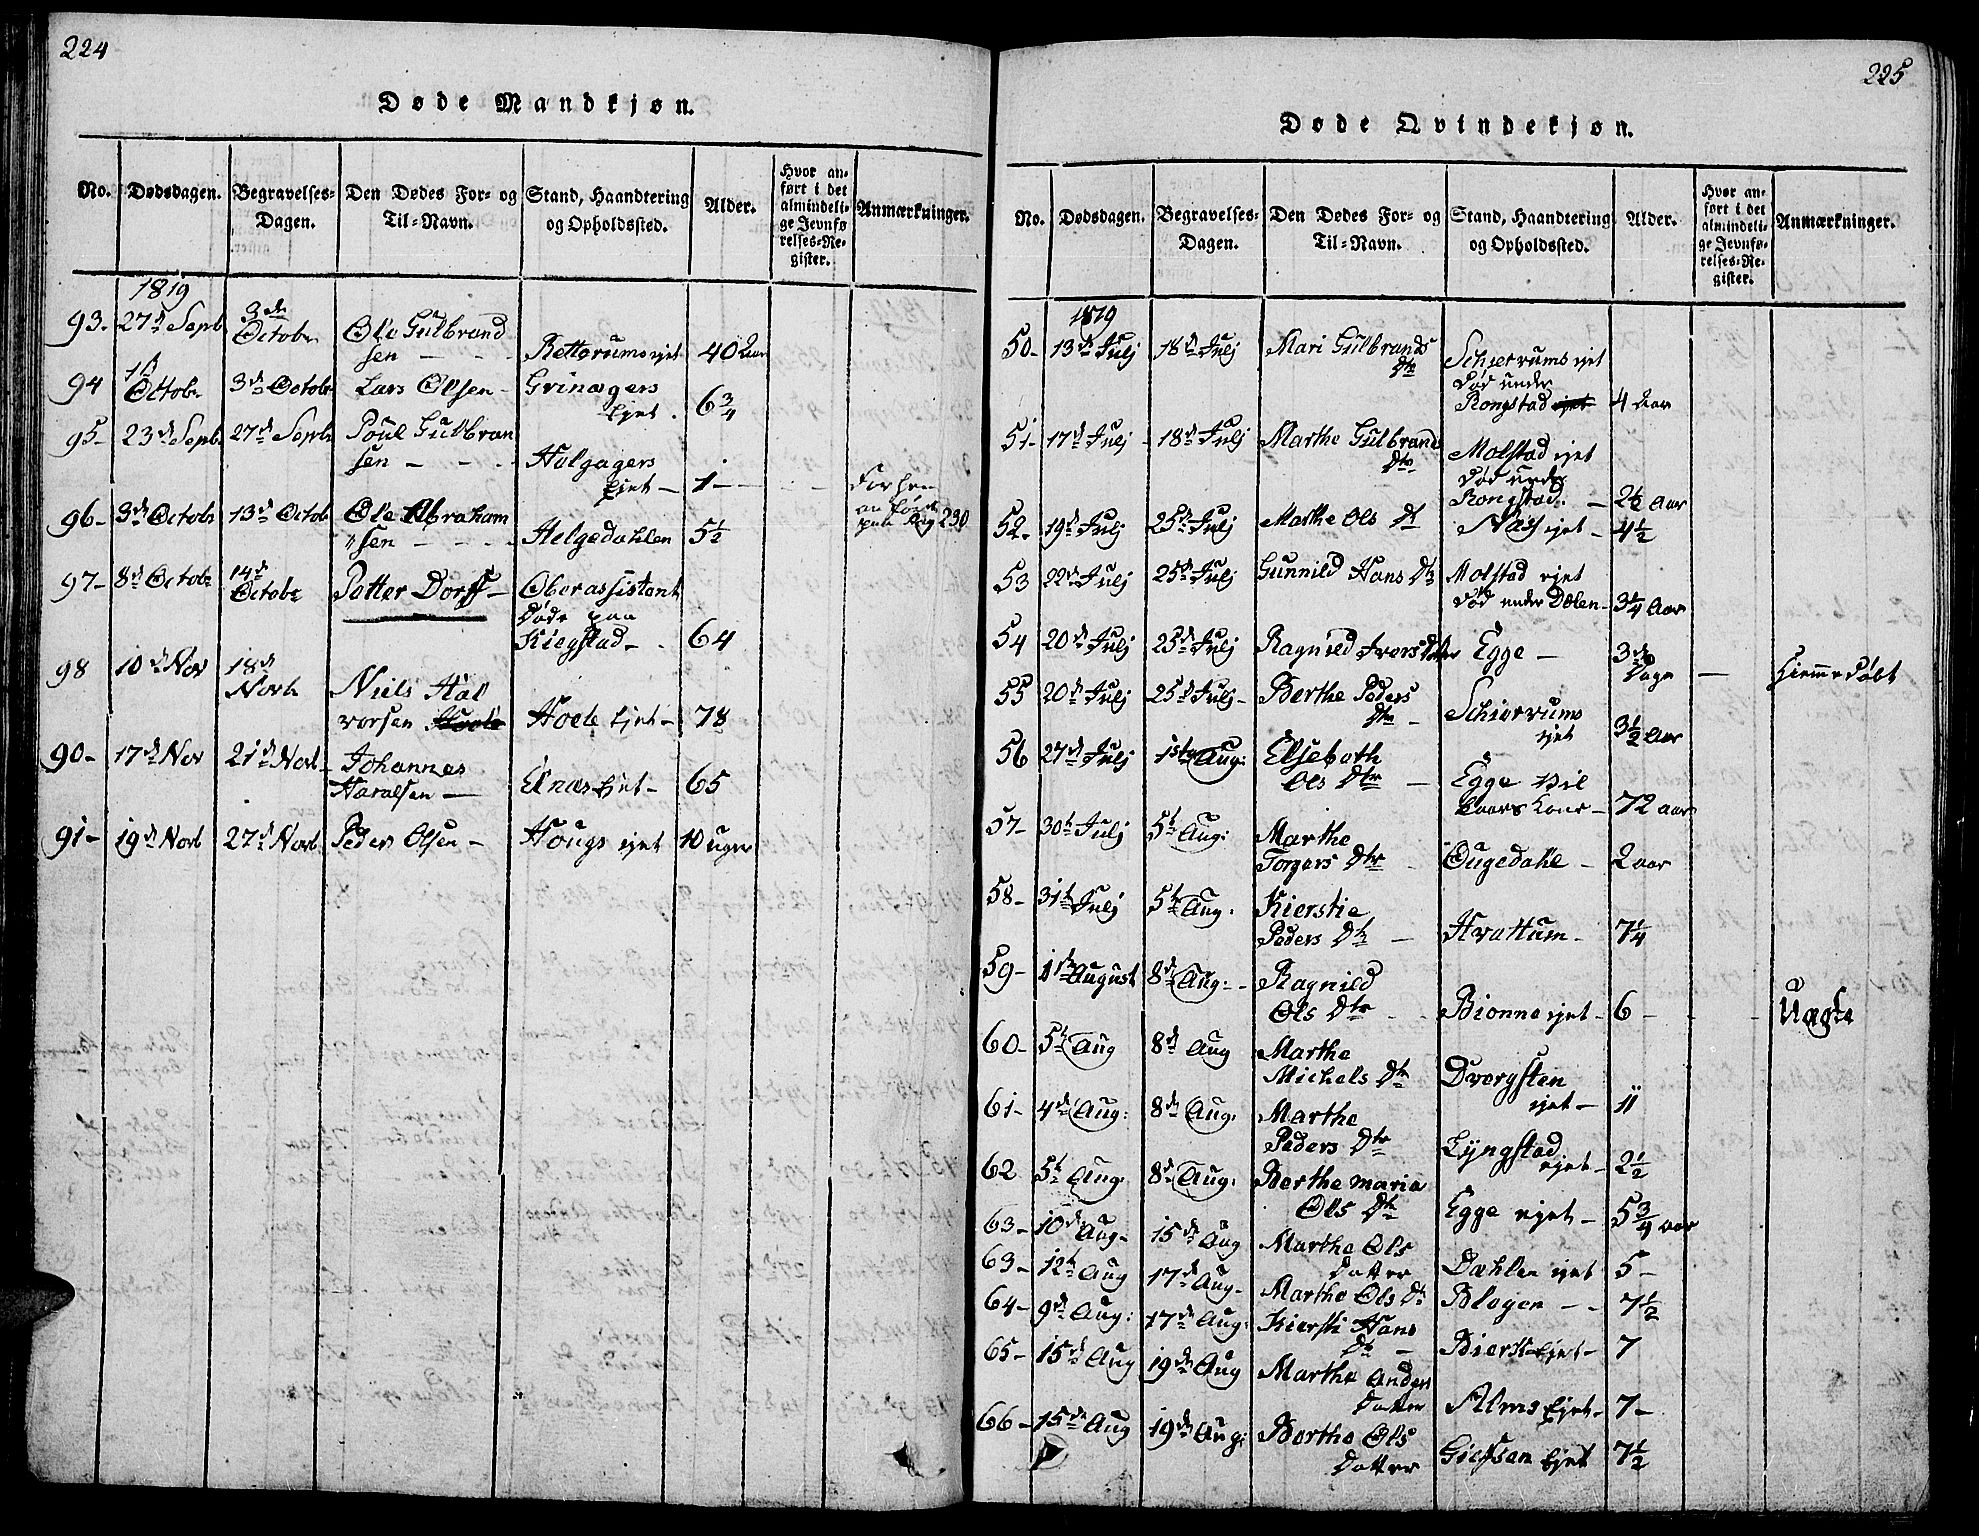 224
Døde Mandkjøn.
No. Dødsdagen. Begravelses-Dagen. Den Dødes For- og Til-Navn. Stand, Haandtering og Opholdssted. Alder. Hvor anført i det almindelige Jevnførelses-Register. Anmærkninger.
1819
93. 27de Septb 3de Octobr Ole Gulbrand
sen — Rettorums ejet 40 Aar
94 1te Octobr 3de Octobr Lars Olsen - Grinagers
Ejet. 6 3/4
95- 23de Septb. 27de Septb Poul Gulbran
sen - - - Holgagers
Ejet - 1 -
96- 3de Octobr 13de Octob Ole Abraham
sen - - - Helgedahlen 5 1/2 230
97- 8de Octobr 14de Octobr Petter Dorff - Oberassistent
Døde paa
Kiegstad - 64
98 10de Nov 18de Novb Niels Hal
vorsen Hoele Ejet - 78
90- 17de Nov 21de Novb Johannes
Haralsen - Elnæs Ejet - 65
91- 19de Novb 27de Novb Peder Olsen - Hougs ejet 10 uger
225
Døde Qvindekjøn.
No. Dødsdagen. Begravelses-Dagen. Den Dødes For- og Til-Navn. Stand, Haandtering og Opholdssted. Alder. Hvor anført i det almindelige Jevnførelses-Register. Anmærkninger.
1819
50- 13de Julj 18de Julj Mari Gulbrands
Dtr Schierrums ejet
død under
Rongstad ejet 4 Aar
51- 17de Julj - 18de Julj Marthe Gulbrands
Dtr Molstad ejet
død under
Rongstad. - 2 1/2 Aar
52. 19de Julj 25de Julj Marthe Ols Dt Næs ejet - 4 1/2
53 22de Julj 25de Julj Gunnild Hans Dtr Molstad ejet
død under Dælen - 3 1/4 Aar
54 20de Julj 25de Julj Ragnild Ivers Datter Egge - 3de
Dage - Hiemmedøbt
55 20de Julj 25de Julj - Berthe Peders
Dtr - Schierrums
ejet 3 1/2 Aar
56 27de Julj 1ste Aug: Elsebeth
Ols Dtr - Egge
Laars Kone - 72 aar
57- 30te Julj 5te Aug: Marthe
Torgers Dtr Ougedahle - 2 aar
58- 31te Julj 5te Aug. Kierstie
Peders Dtr - Hvattum - 7 1/4
59- 1ste August 8de Aug: - Ragnild
Ols Dtr - Bionne ejet - 6 - Uægte
60- 5te Aug 8de Aug Marthe
Michels Dtr Dvergsten
ejet - 11
61- 4de Aug: 8de Aug. Marthe
Peders Dtr Lyngstad
ejet - 2 1/2
62 5te Aug. 8de Aug: Berthe Maria
Ols Dtr Egge ejet - 5 3/4 aar
63- 10de Aug - 15de Aug Marthe Ols
Datter Dæhlen ejet 5 -
63- 12te Aug 17de Aug - Marthe Ols Dtr Blegen - - 7 1/2
64- 9de Aug: 17de Aug: Kiersti Hans
Dtr - Bierke Ejet - 7
65- 15de Aug 19de Aug Marthe Anders
Datter Alms Ejet - 7 -
66- 15de Aug 19de Aug: Berthe Ols
Datter Giefsen Ejet 7 1/2